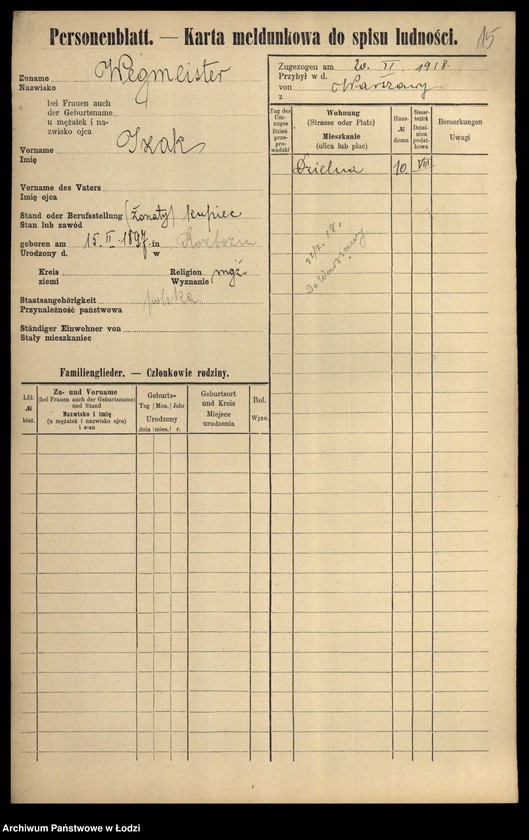 Personenblatt. — Karta meldunkowa do spisu ludności.
15
Zuname Wegmeister
Nazwisko
bei Frauen auch
der Geburtsname
u mężatek i na-
zwisko ojca
Vorname Izak
Imię
Vorname des Vaters
Imię ojca
Stand oder Berufsstellung (żonaty) kupiec
Stan lub zawód
geboren am 15. II. 1897. in
Urodzony d. w
Kreis Religion mojż
ziemi Wyznanie
Staatsangehörigkeit polska
Przynależność państwowa
Ständiger Einwohner von
Stały mieszkaniec
Zugezogen am 20. VI. 1918.
Przybył w d.
von Warszawy
z
Tag des Um-zuges
Dzień prze-prowadzki
Wohnung
(Strasse oder Platz)
Mieszkanie
(ulica lub plac)
Haus-№ domu
Steuer-bezirk
Dziel-nica podat-kowa
Bemerkungen
Uwagi
Dzielna 10. VIII
22/7. 18.
Do Warszawy.
Familienglieder. — Członkowie rodziny.
Lfd. № bież.
Zu- und Vorname
(bei Frauen auch der Geburtsname)
und Stand
Nazwisko i imię
(u mężatek i nazwisko ojca)
i stan
Geburts-
Tag | Mon. | Jahr
Urodzony
dnia | mies. | r.
Geburtsort
und Kreis
Miejsce
urodzenia
Rel.
Wyzn.
Archiwum Państwowe w Łodzi